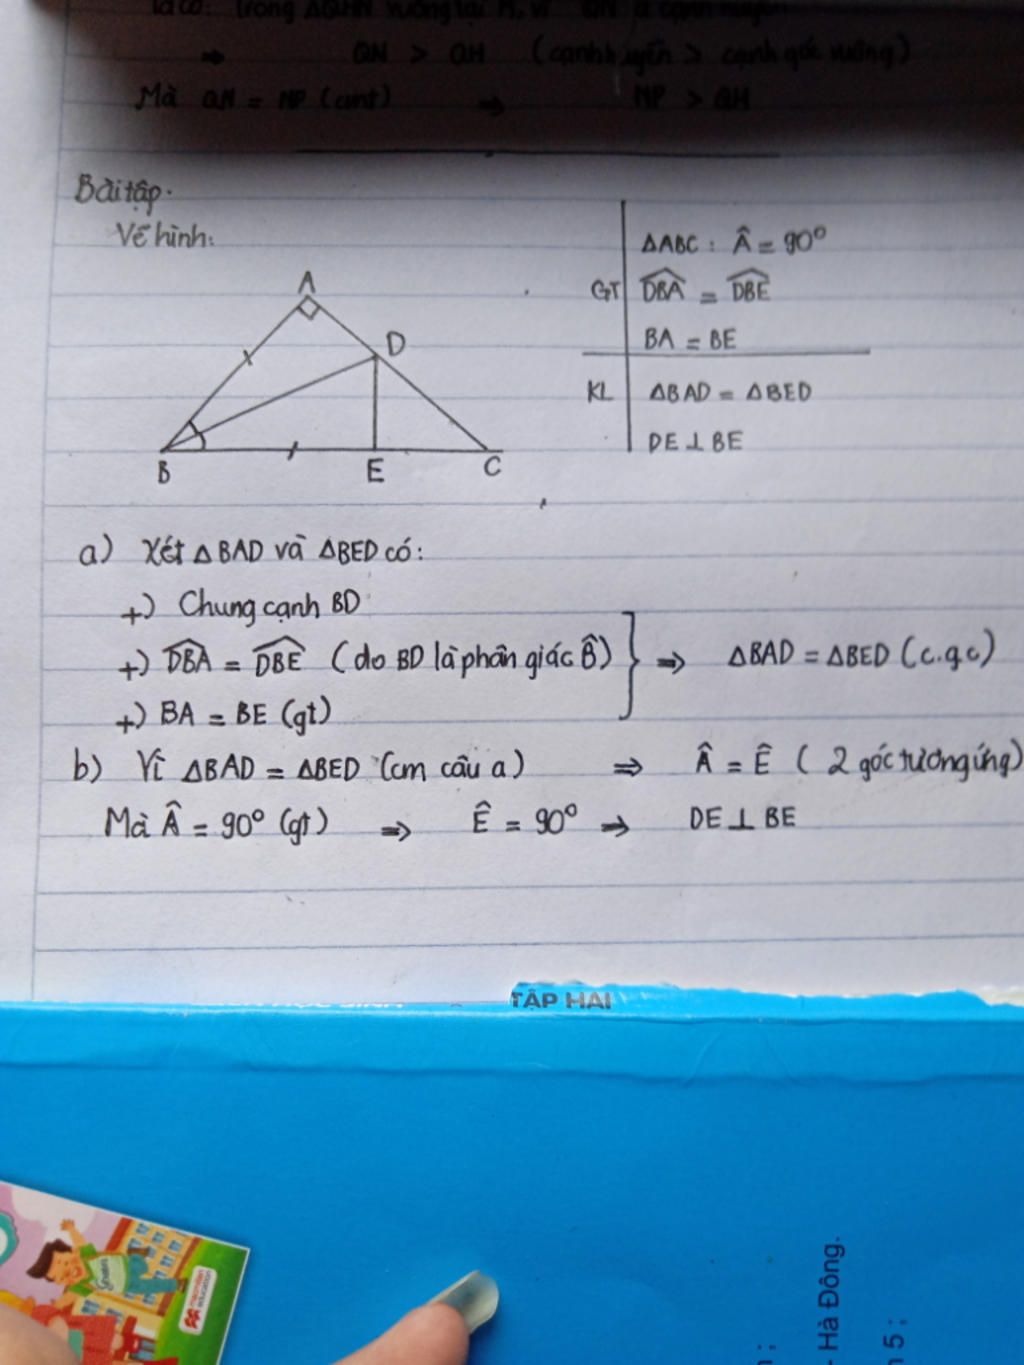 Ta có: Trong ΔQHN vuông tại H, vì QN là cạnh huyền
⇒ QN > QH (cạnh huyền > cạnh góc vuông)
Mà QN = NP (cmt) ⇒ NP > QH
Bài tập.
Vẽ hình:
ΔABC : Â = 90°
GT DBA = DBE
BA = BE
KL ΔBAD = ΔBED
DE ⊥ BE
A
D
B E C
a) Xét ΔBAD và ΔBED có:
+) Chung cạnh BD
+) DBA = DBE (do BD là phân giác B̂) } ⇒ ΔBAD = ΔBED (c.g.c)
+) BA = BE (gt)
b) Vì ΔBAD = ΔBED (cm câu a) ⇒ Â = Ê ( 2 góc tương ứng)
Mà Â = 90° (gt) ⇒ Ê = 90° ⇒ DE ⊥ BE
TẬP HAI
- Hà Đông.
5 ;
macmillan
education